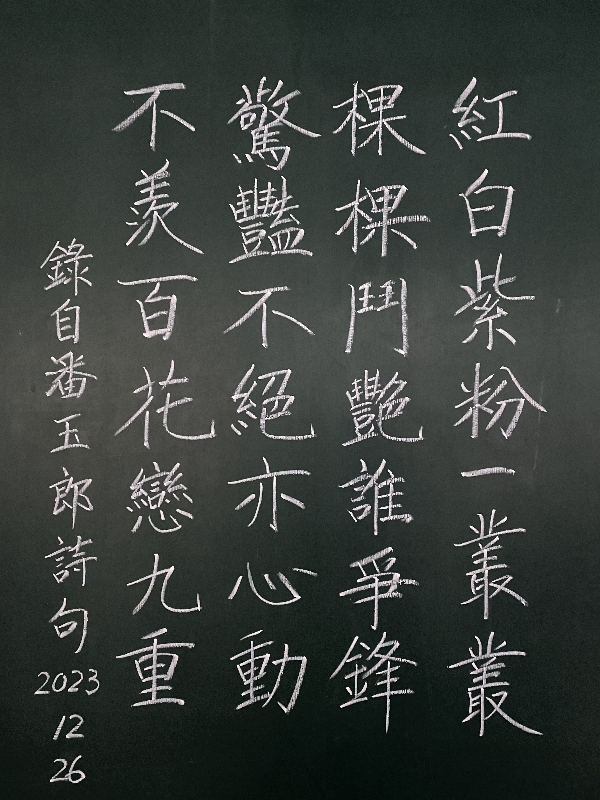 紅白紫粉一叢叢
棵棵鬥艷誰爭鋒
驚豔不絕亦心動
不羨百花戀九重
錄自番玉郎詩句
2023
12
26